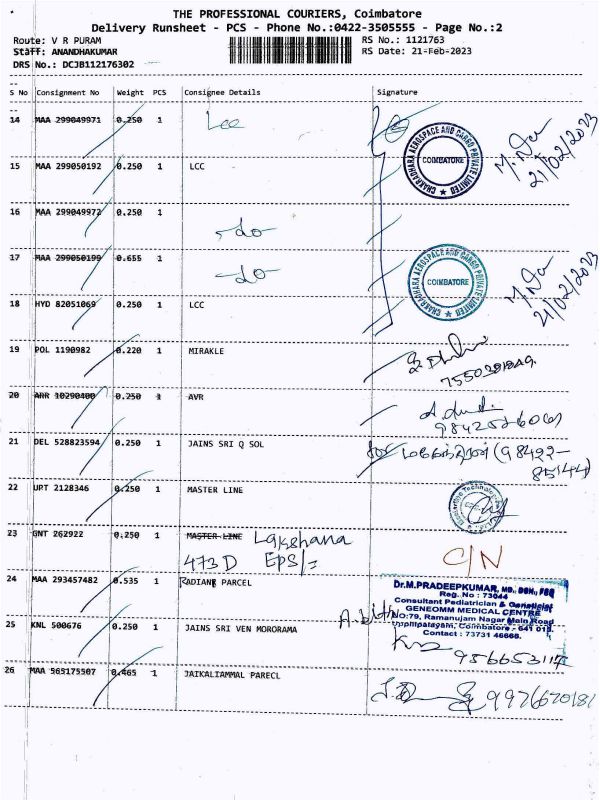 THE PROFESSIONAL COURIERS, Coimbatore
Delivery Runsheet - PCS - Phone No.:0422-3505555 - Page No.:2
Route: V R PURAM RS No.: 1121763
Staff: ANANDHAKUMAR RS Date: 21-Feb-2023
DRS No.: DCJB112176302
S No Consignment No Weight PCS Consignee Details Signature
14 MAA 299049971 0.250 1 Lcc
CHAKRADHARA AEROSPACE AND CARGO PRIVATE LIMITED
COIMBATORE
21/02/2023
15 MAA 299050192 0.250 1 LCC
16 MAA 299049972 0.250 1 -do-
17 MAA 299050199 0.655 1 -do-
CHAKRADHARA AEROSPACE AND CARGO PRIVATE LIMITED
COIMBATORE
21/02/2023
18 HYD 82051069 0.250 1 LCC
19 POL 1190982 0.220 1 MIRAKLE
20 ARR 10290400 0.250 1 AVR
21 DEL 528823594 0.250 1 JAINS SRI Q SOL
(98422-
85144)
22 UPT 2128346 0.250 1 MASTER LINE
23 GNT 262922 0.250 1 MASTER LINE Lakshana
473 D EPS/= C/N
24 MAA 293457482 0.535 1 RADIANE PARCEL
Dr.M.PRADEEPKUMAR, MD., DGH., FGG
Reg. No : 73044
Consultant Pediatrician & Geneticist
GENEOMM MEDICAL CENTRE
NO:79, Ramanujam Nagar Main Road
Uppilipalayam, Coimbatore - 641 015.
Contact : 73731 46668.
25 KNL 500676 0.250 1 JAINS SRI VEN MORORAMA
26 MAA 565175507 0.465 1 JAIKALIAMMAL PARECL